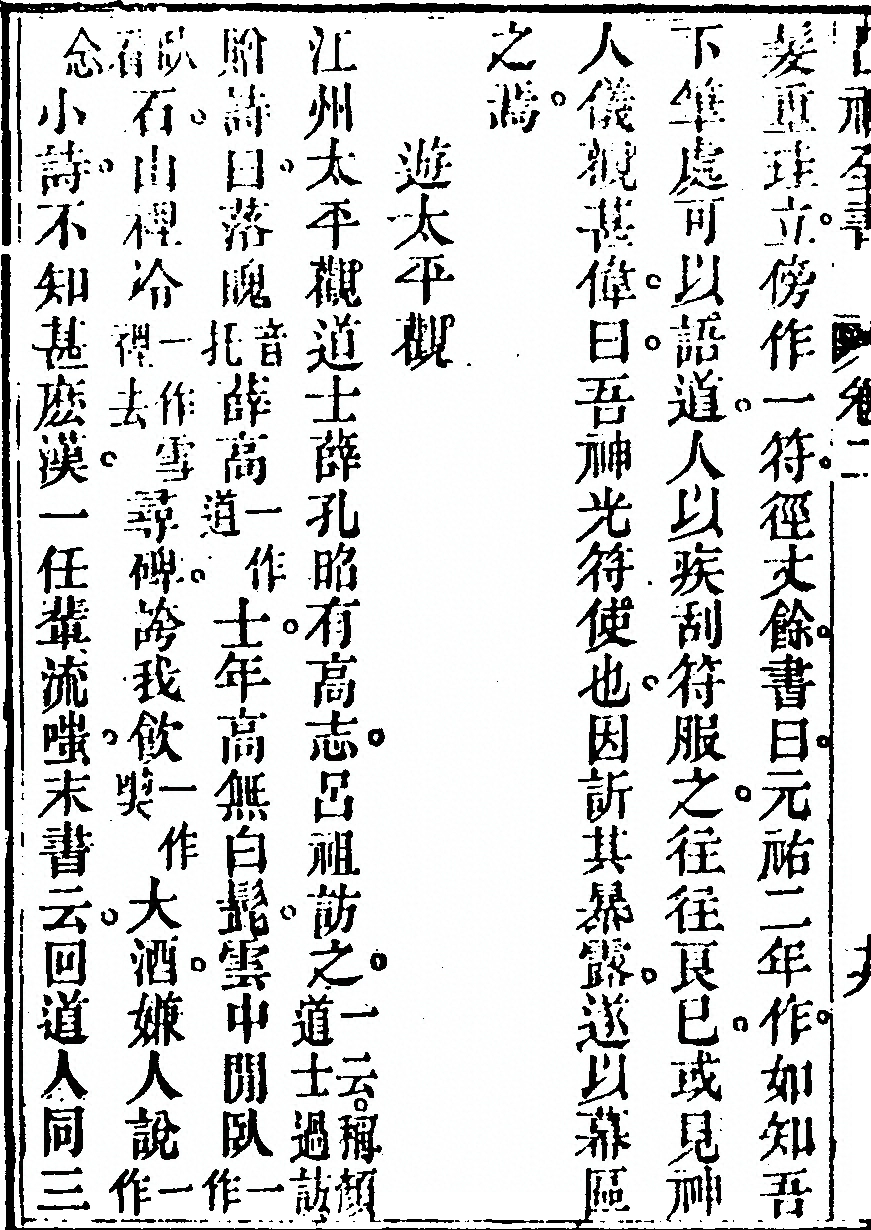 呂祖全書 卷二
髮重珪立傍作一符徑丈餘書曰元祐二年作如知吾
下筆處可以語道人以疾刮符服之往往良已或見神
人儀觀甚偉曰吾神光符使也因訢其暴露遂以幕區
之焉
遊太平觀
江州太平觀道士薛孔昭有高志呂祖訪之一云稱顛道士過訪
贈詩曰落魄音托薛高一作道士年高無白髭雲中閒臥一作
臥看石山裡冷一作雪裡去尋碑誇我飲一作喫大酒嫌人說一作
念小詩不知甚麽漢一任輩流嗤末書云回道人同三